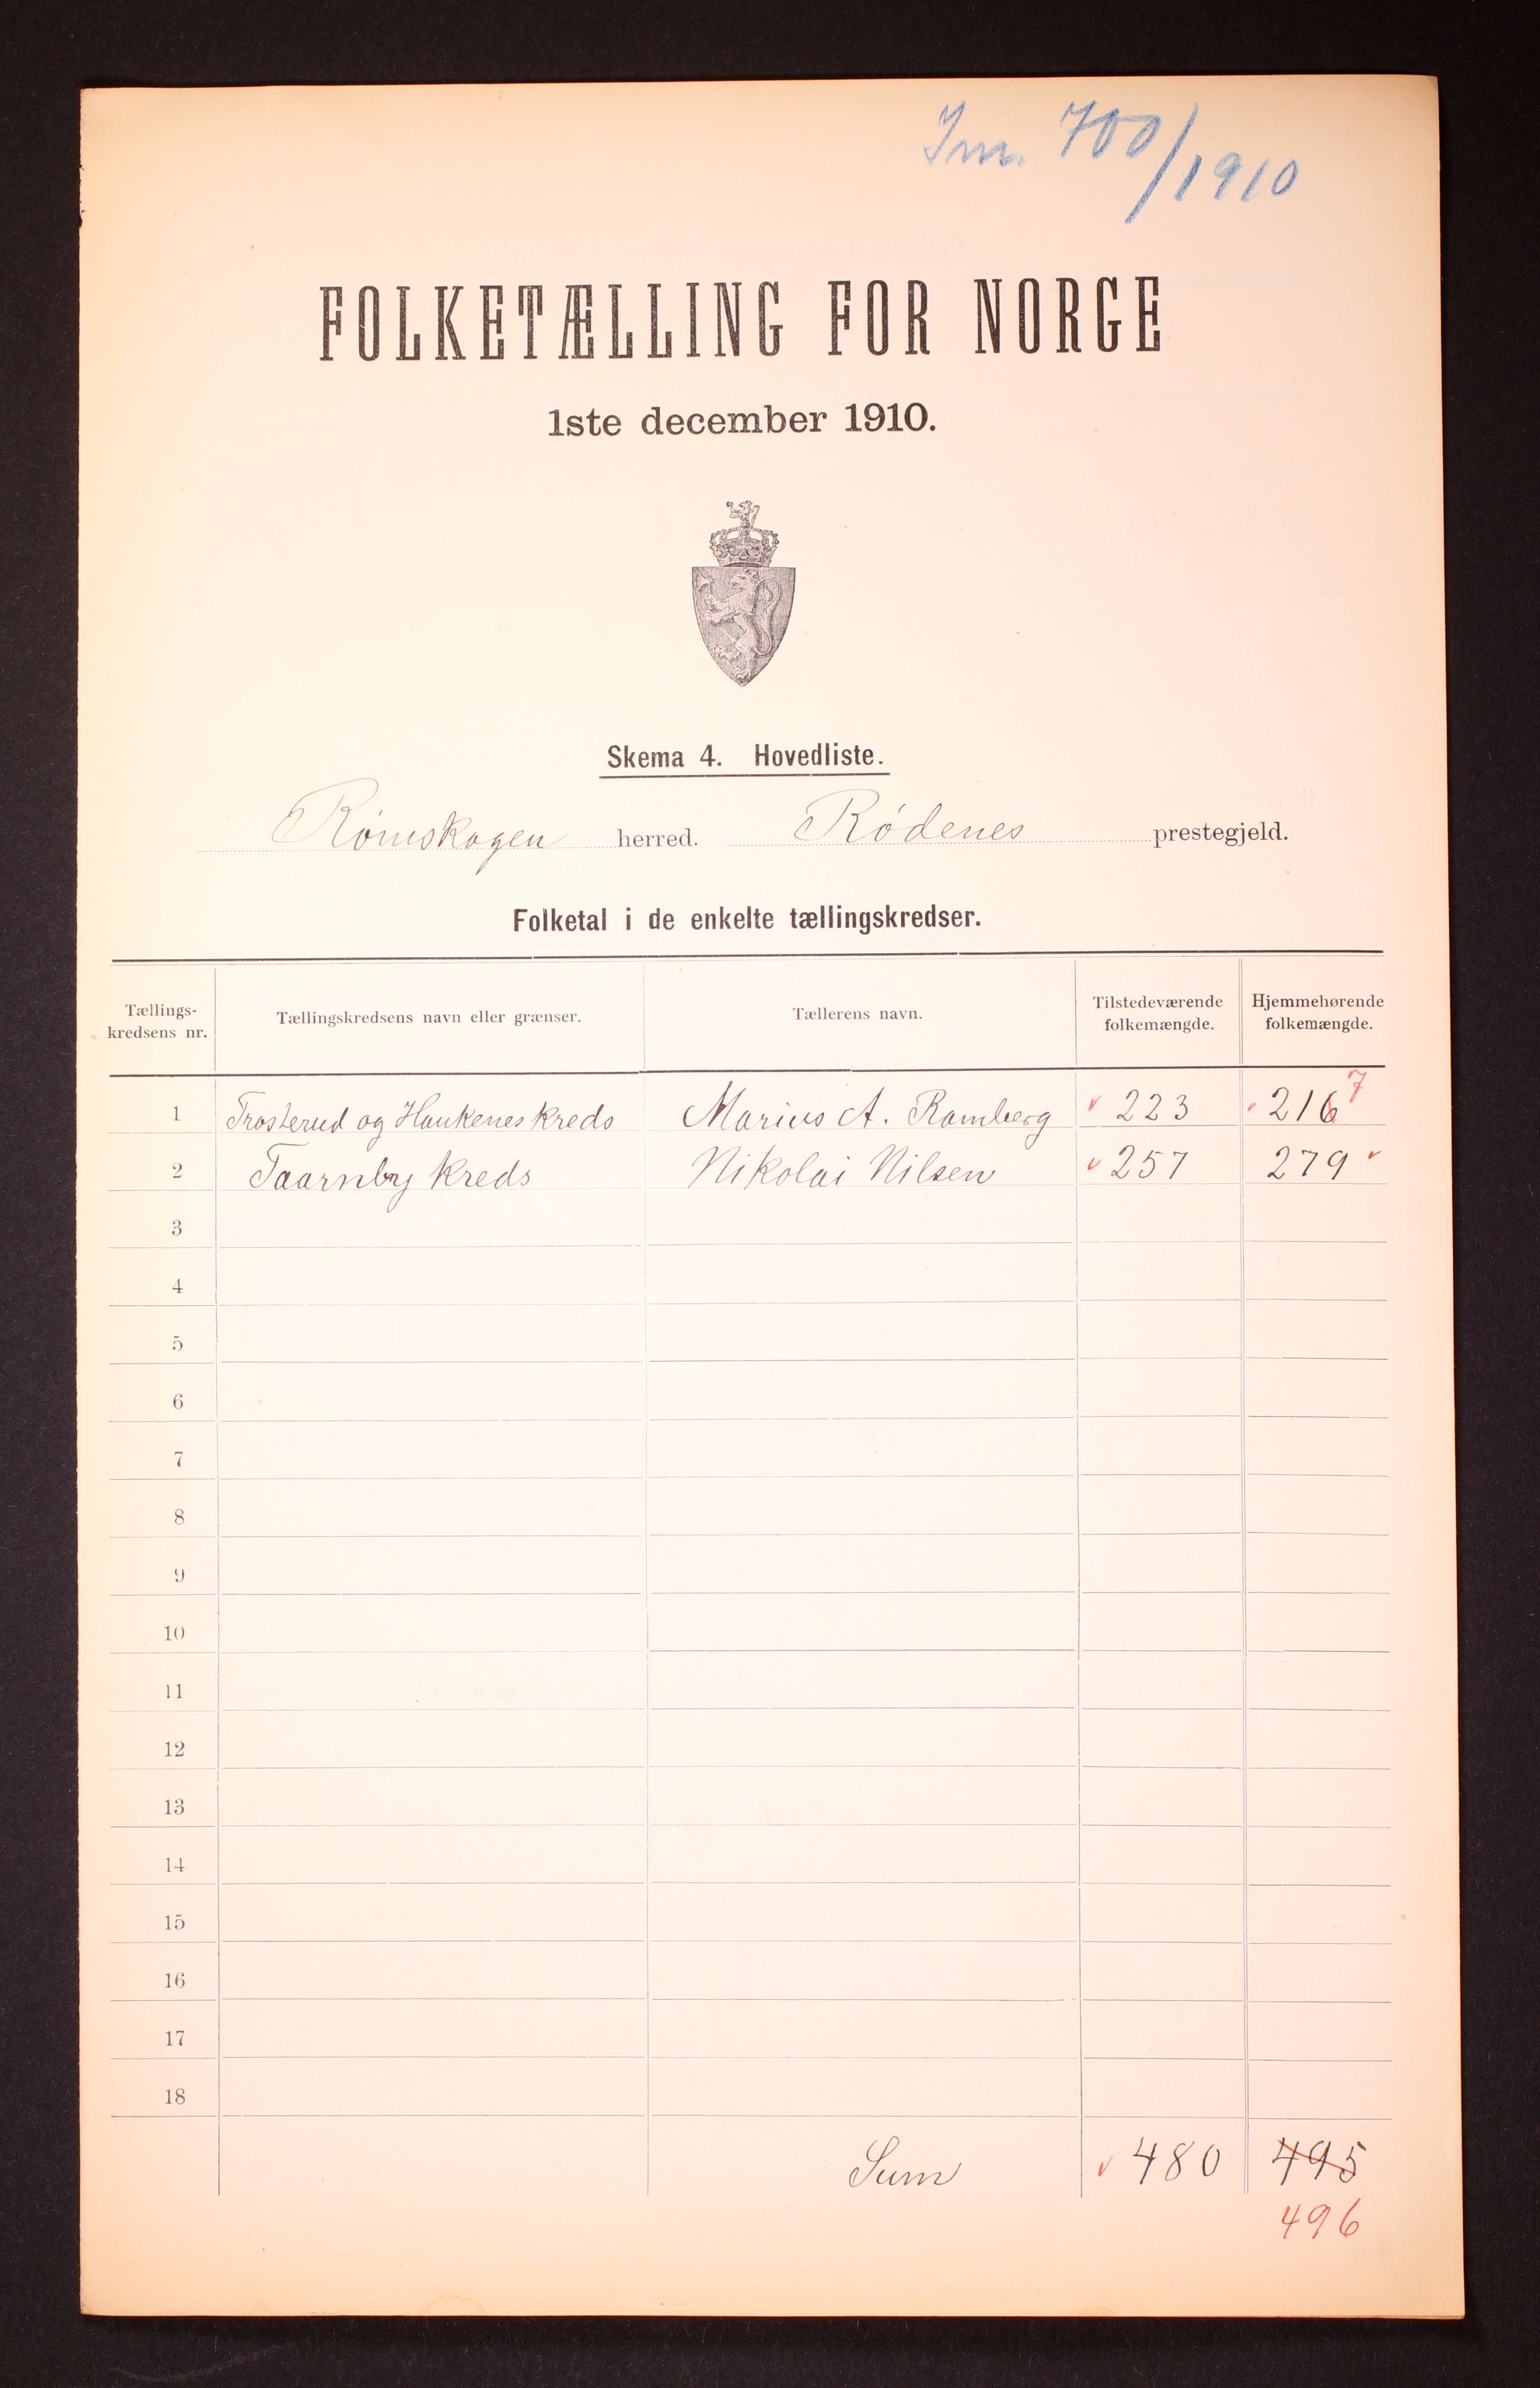 Jnr. 700/1910
FOLKETÆLLING FOR NORGE
1ste december 1910.
Skema 4. Hovedliste.
Rømskogen herred. Rødenes prestegjeld.
Folketal i de enkelte tællingskredser.
Tællings-kredsens nr. Tællingskredsens navn eller grænser. Tællerens navn. Tilstedeværende folkemængde. Hjemmehørende folkemængde.
1 Trosterud og Haukenes kreds Marius A. Ramberg 223 216 7
2 Taarnby kreds Nikolai Nilsen 257 279
3
4
5
6
7
8
9
10
11
12
13
14
15
16
17
18
Sum 480 495
496